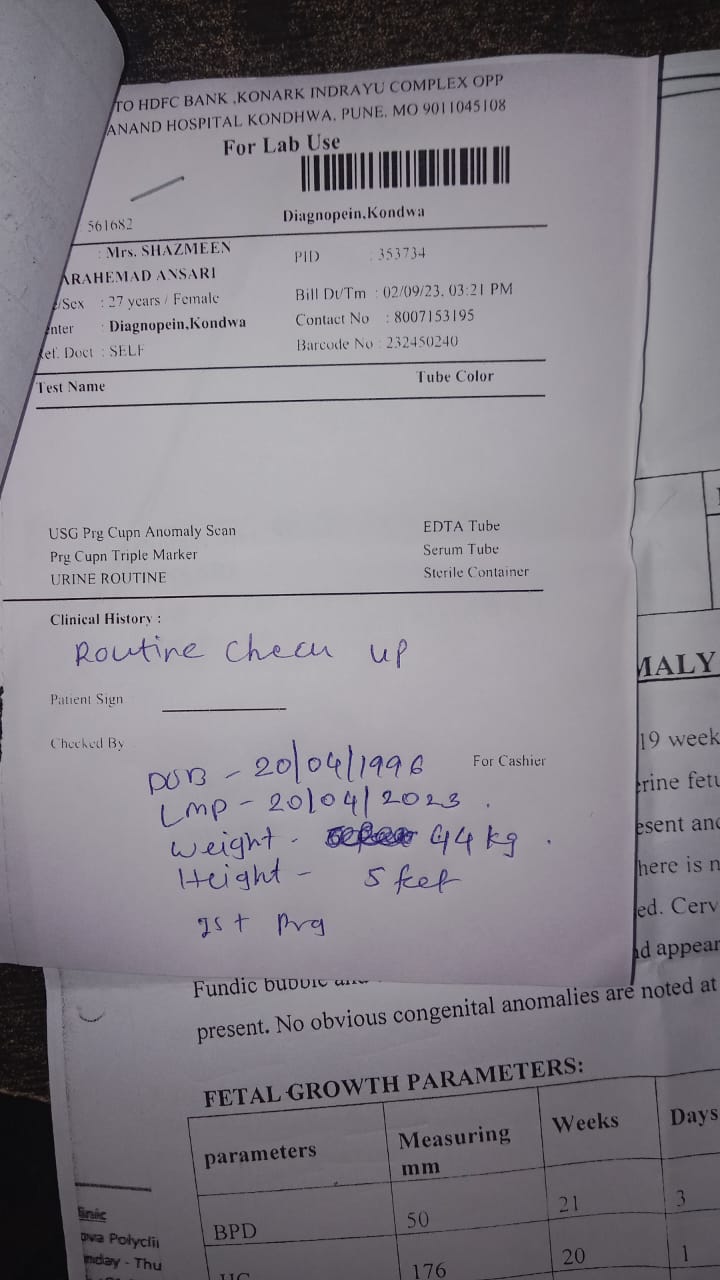 TO HDFC BANK ,KONARK INDRAYU COMPLEX OPP
ANAND HOSPITAL KONDHWA, PUNE. MO 9011045108
For Lab Use
561682
Diagnopein,Kondwa
: Mrs. SHAZMEEN
ARAHEMAD ANSARI
PID : 353734
/Sex : 27 years / Female
Bill Dt/Tm : 02/09/23, 03:21 PM
enter : Diagnopein,Kondwa
Contact No : 8007153195
Ref. Doct : SELF
Barcode No : 232450240
Test Name
Tube Color
USG Prg Cupn Anomaly Scan
EDTA Tube
Prg Cupn Triple Marker
Serum Tube
URINE ROUTINE
Sterile Container
Clinical History :
Routine check up
Patient Sign
Checked By
For Cashier
DOB - 20/04/1996
LMP - 20/04/2023 .
Weight - 44 kg .
Height - 5 feet
1st Prg
MALY
19 week
erine fetu
esent and
here is n
ed. Cerv
d appear
Fundic bubble
present. No obvious congenital anomalies are noted at
FETAL GROWTH PARAMETERS:
parameters
Measuring mm
Weeks
Days
BPD 50 21 3
HC 176 20 1
linic
ova Polyclii
nday - Thu